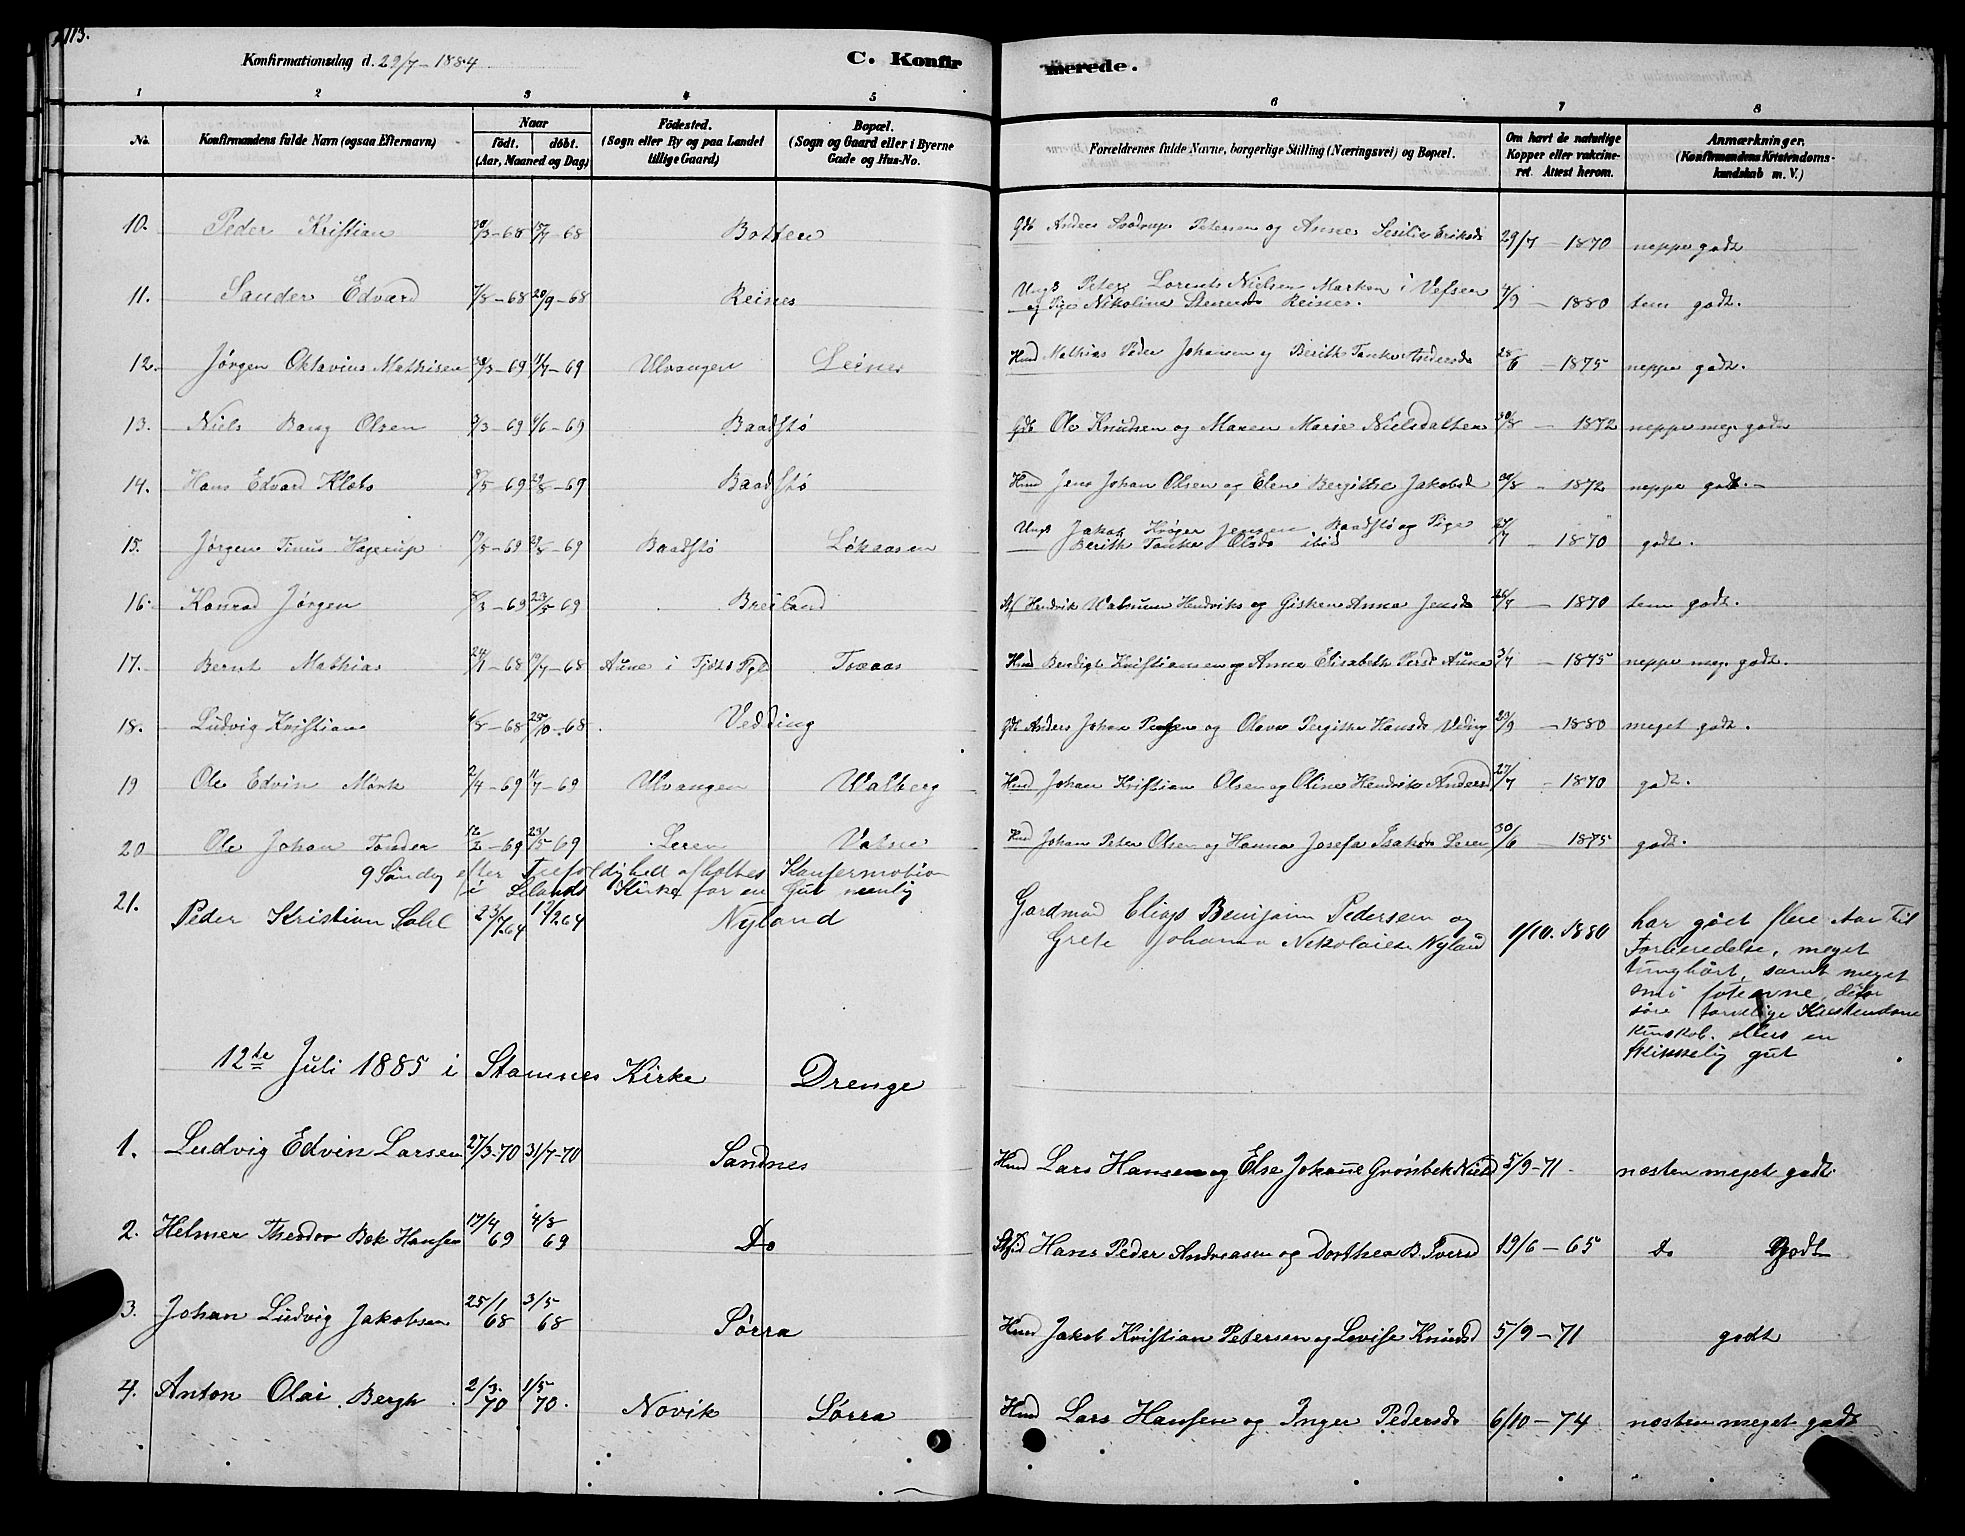 113.
Konfirmationsdag d. 29/7 - 1884
C. Konfirmerede.
1 2 3 4 5 6 7 8
No. Konfirmandens fulde Navn (ogsaa Efternavn) Naar födt. döbt. (Aar, Maaned og Dag) Födested. (Sogn eller By og paa Landet tillige Gaard) Bopæl. (Sogn og Gaard eller i Byerne Gade og Hus-No. Forældrenes fulde Navne, borgerlige Stilling (Næringsvei) og Bopæl. Om havt de naturlige Kopper eller vakcineret. Attest herom. Anmærkninger. (Konfirmandens Kristendomskundskab m. V.)
10. Peder Kristian 30/3-68 17/7-68 Botten Gdb Anders Petersen og Anne Eriksd 29/7 - 1870 neppe godt
11. Sander Edvard 7/8-68 20/9-68 Reines Ungk Peter Lorents Nielsen Marken i Vefsen
og Pige Nikoline Reines. 4/9 - 1880 tem godt.
12. Jørgen Oktavius Mathisen 30/3-69 11/7-69 Ulvangen Leines Hmd Mathias Peder Johansen og Berith Tanke Andersd 28/6 - 1875 neppe godt.
13. Niels Bang Olsen 3/3-69 6/6-69 Baadstø Gdb Ole Knudsen og Maren Marie Nielsdatter 30/8 - 1872 neppe meg godt
14. Hans Edvard Klæbo 8/5-69 29/8-69 Baadstø Hmd Jens Johan Olsen og Elen Bergitte Jakobsd 30/8 - 1872 neppe godt.-
15. Jørgen Tinus Hagerup 19/5-69 29/8-69 Baadstø Løkaasen Ungk Jakob Krøger Jensen Baadstø og Pige
Berith Tanke Olsd ibid 27/7 1870 godt.
16. Konrad Jørgen 8/3-69 23/5-69 Breiland Hendrik Hendriks og Gisken Anna Jensd 26/7 - 1870 tem godt.
17. Bernt Mathias 24/1-68 19/7-68 Aune i Tjøtø Pgl Tvæaas Hmd Bendigt Kristiansen og Anna Elisabeth Persd Aune 3/7 - 1875 neppe meg godt.
18. Ludvig Kristian 6/8-68 25/10-68 Vedding Gdb Anders Johan og Olava Bergitte Hansd Veding 29/9 - 1880 meget godt.
19 Ole Edvin Mørk 2/4-69 11/7-69 Ulvangen Valberg Hmd Johan Kristian Olsen og Oline Hendrike Andersd 27/7 - 1870 godt.
20 Ole Johan Tønder 12/2-69 23/5-69 Leren Vatne Hmd Johan Peter Olsen og Hanna Josefa Isaksd Leren 30/6 - 1875 godt.
9 Søndag efter Trefoldighed afholtes Konfermotion
i Leilands Kirke for en Gut nemlig
21. Peder Kristian Dahl 23/7 64 1264 Nyland Gardmad Elias Benjamin Pedersen og
Grete Johanna Nekolaiesen Nyland 1/10. 1880 har gået flere Aar til
Forberedelse, meget
tunghørt, samt meget
små fateevne, derfor
Kristendoms
kunskab. ellers en
skikkelig gut
12te Juli 1885 i Stamnes Kirke Drenge
1. Ludvig Edvin Larsen 27/3-70 31/7-70 Sandnes Hmd Lars Hansen og Else Johane Grønbek Nielsd 5/9-71 næsten meget godt.
2. Helmer Theodor Bek Hansen 17/4 69 4/8 69 Do Hans Peder Andreasen og Dorthea B. Iversd 19/6 - 65 Do Godt
3. Johan Ludvig Jakobsen 25/1 68 3/5 68 Sørra Hmd Jakob Kristian Petersen og Lovise Knudsd 5/9-71 godt
4. Anton Olai Bergh 2/3. 70 1/5 70. Novik Sørra Hmd Lars Hansen og Inger Pedersd 6/10-74 næsten meget godt